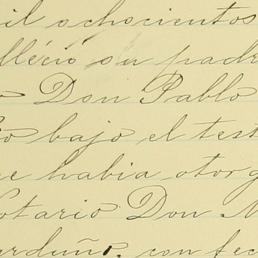 il ochocientos
lleció su padr
Don Pablo
bajo el test
e habia otorg
otario Don M
arduño, con fec